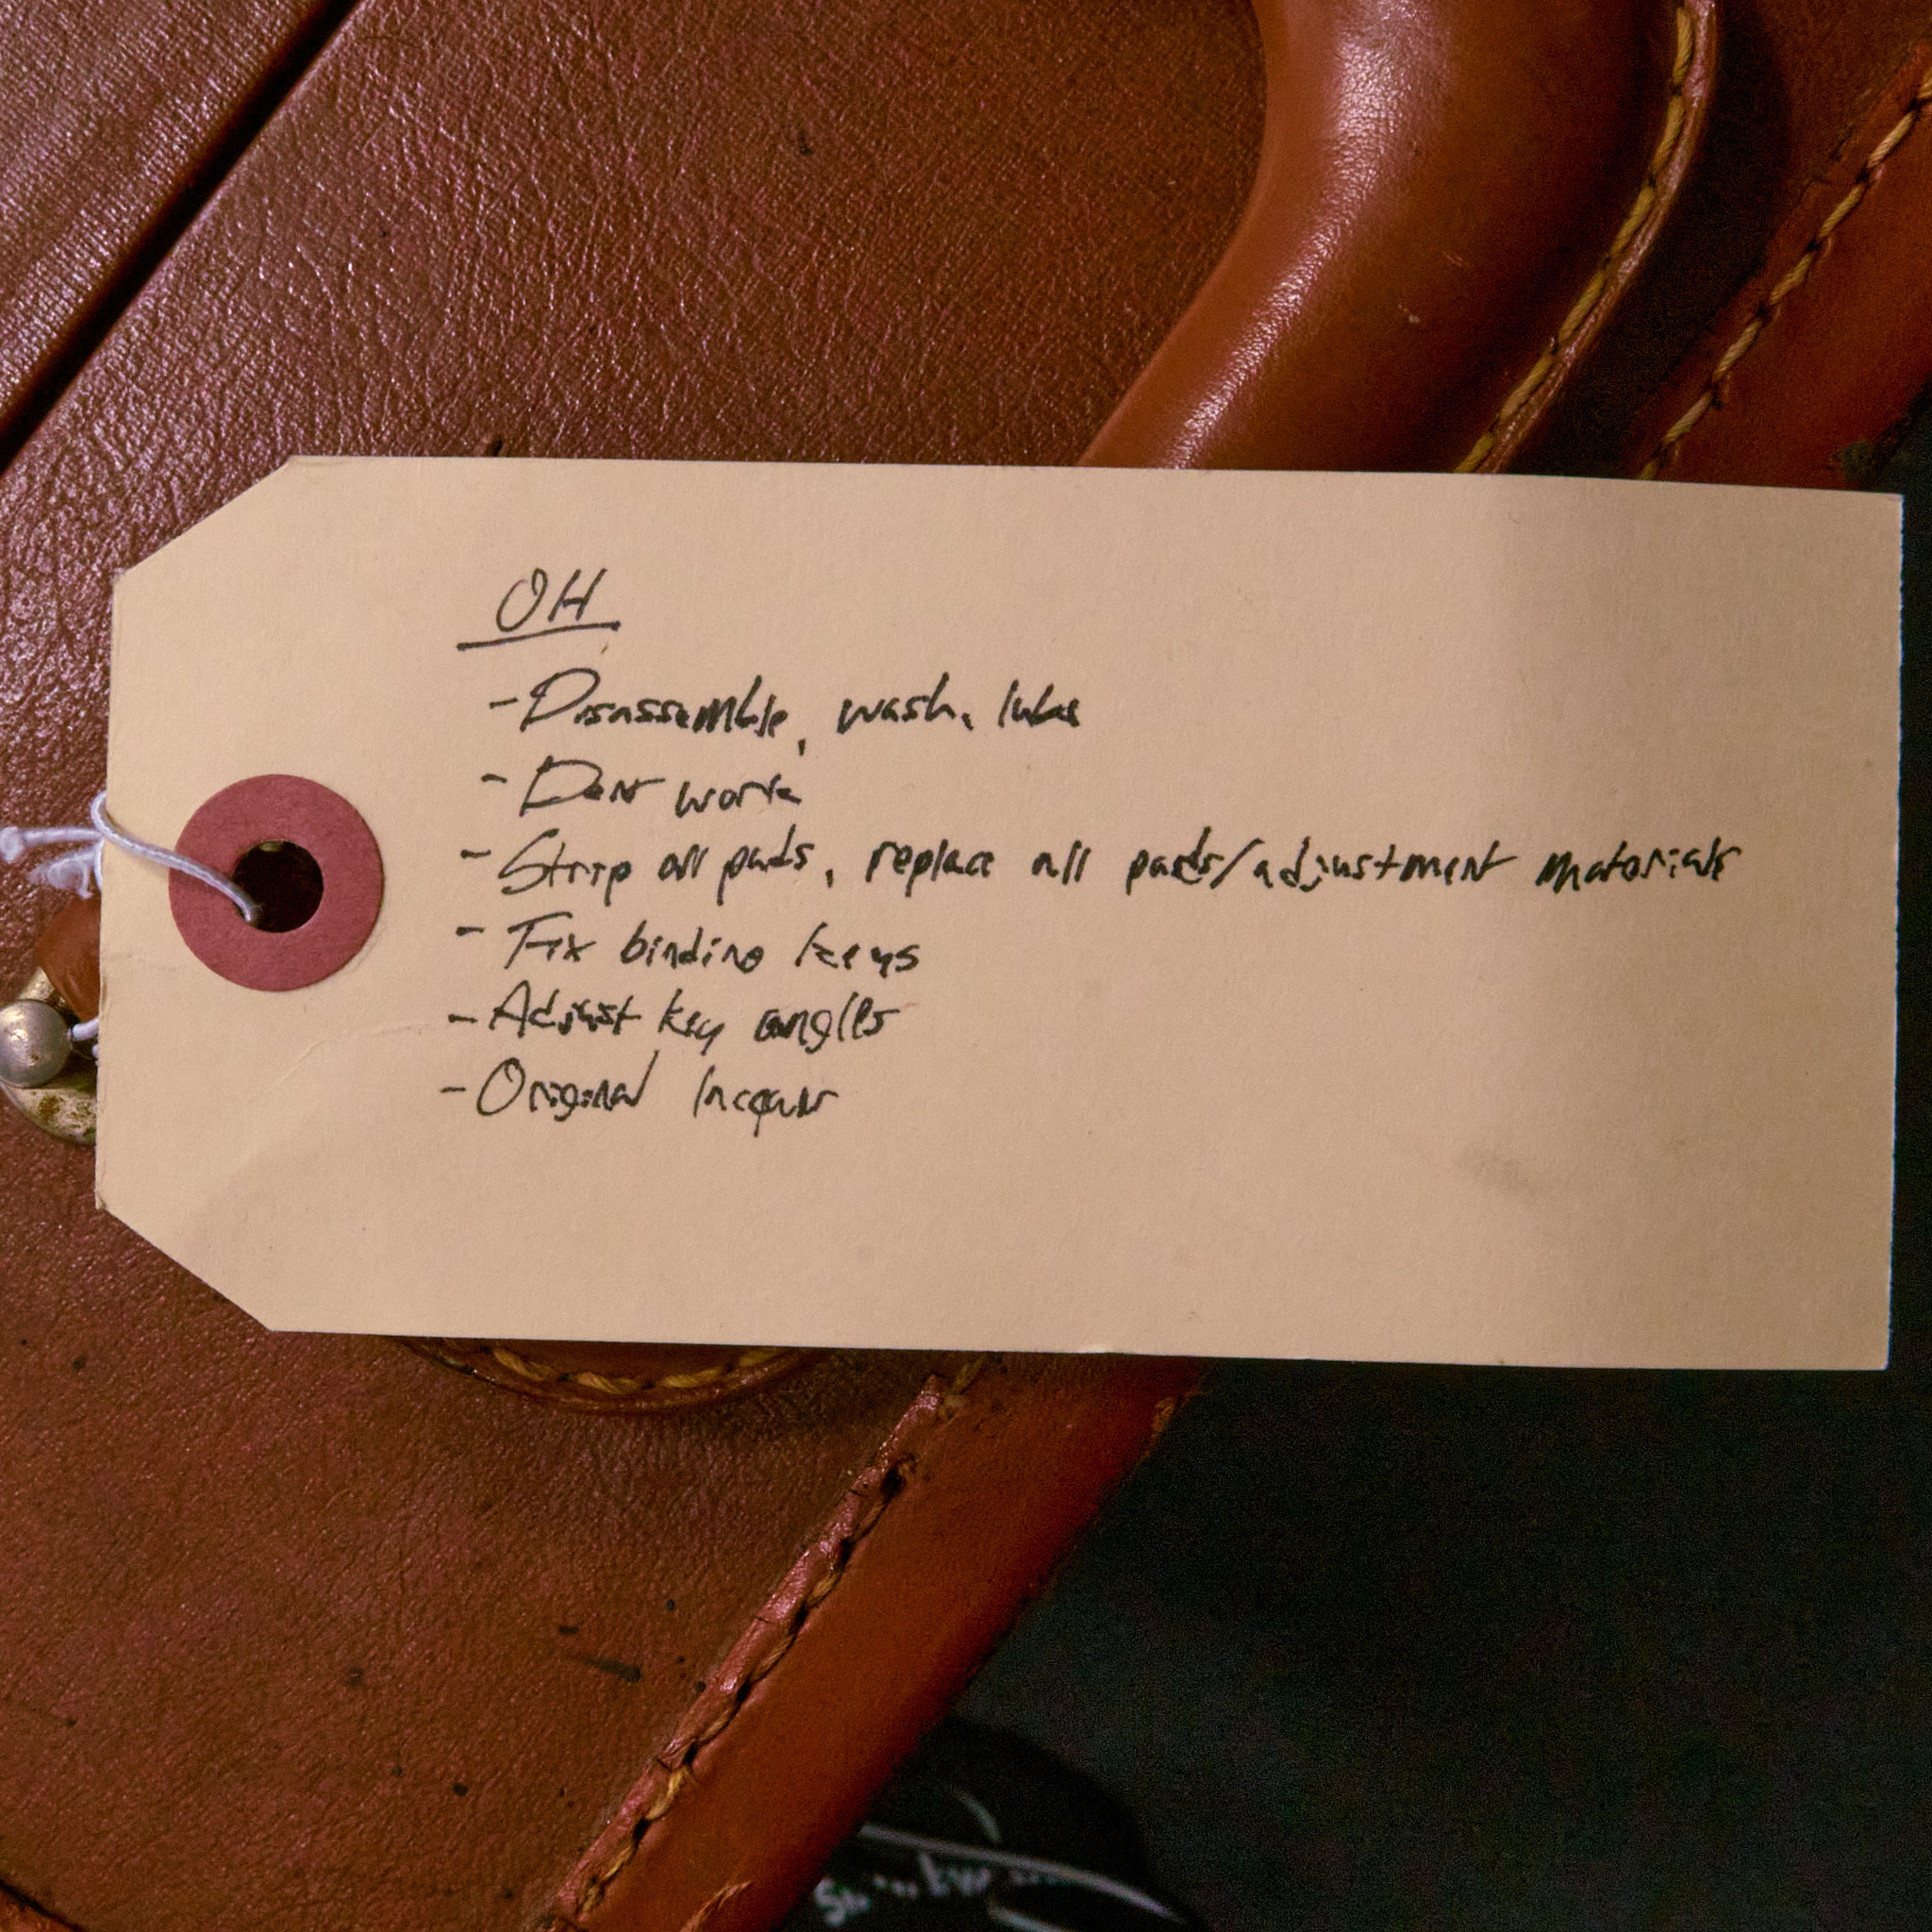 OH
- Disassemble, wash, lube
- Dent work
- Strip all pads, replace all pads/adjustment materials
- Fix binding keys
- Adjust key angles
- Original lacquer